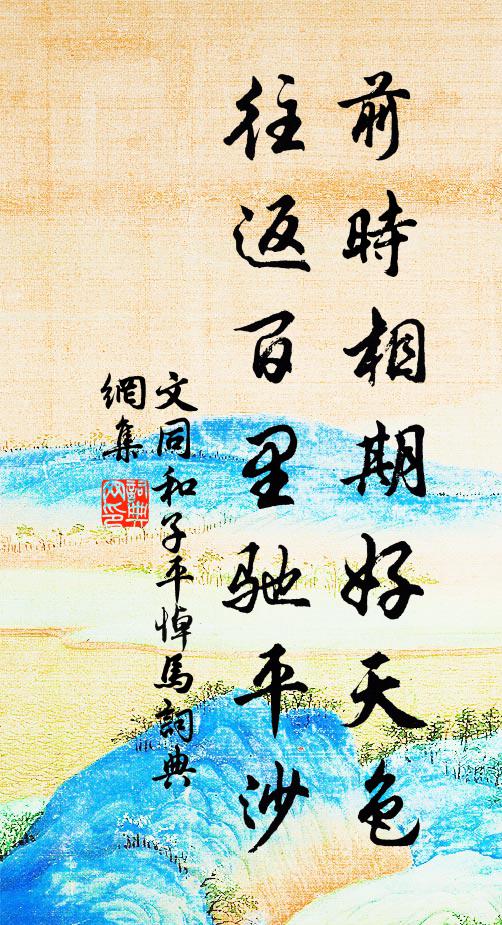 前時相期好天色
往返百里馳平沙
文同和子平悼馬詞典
網集